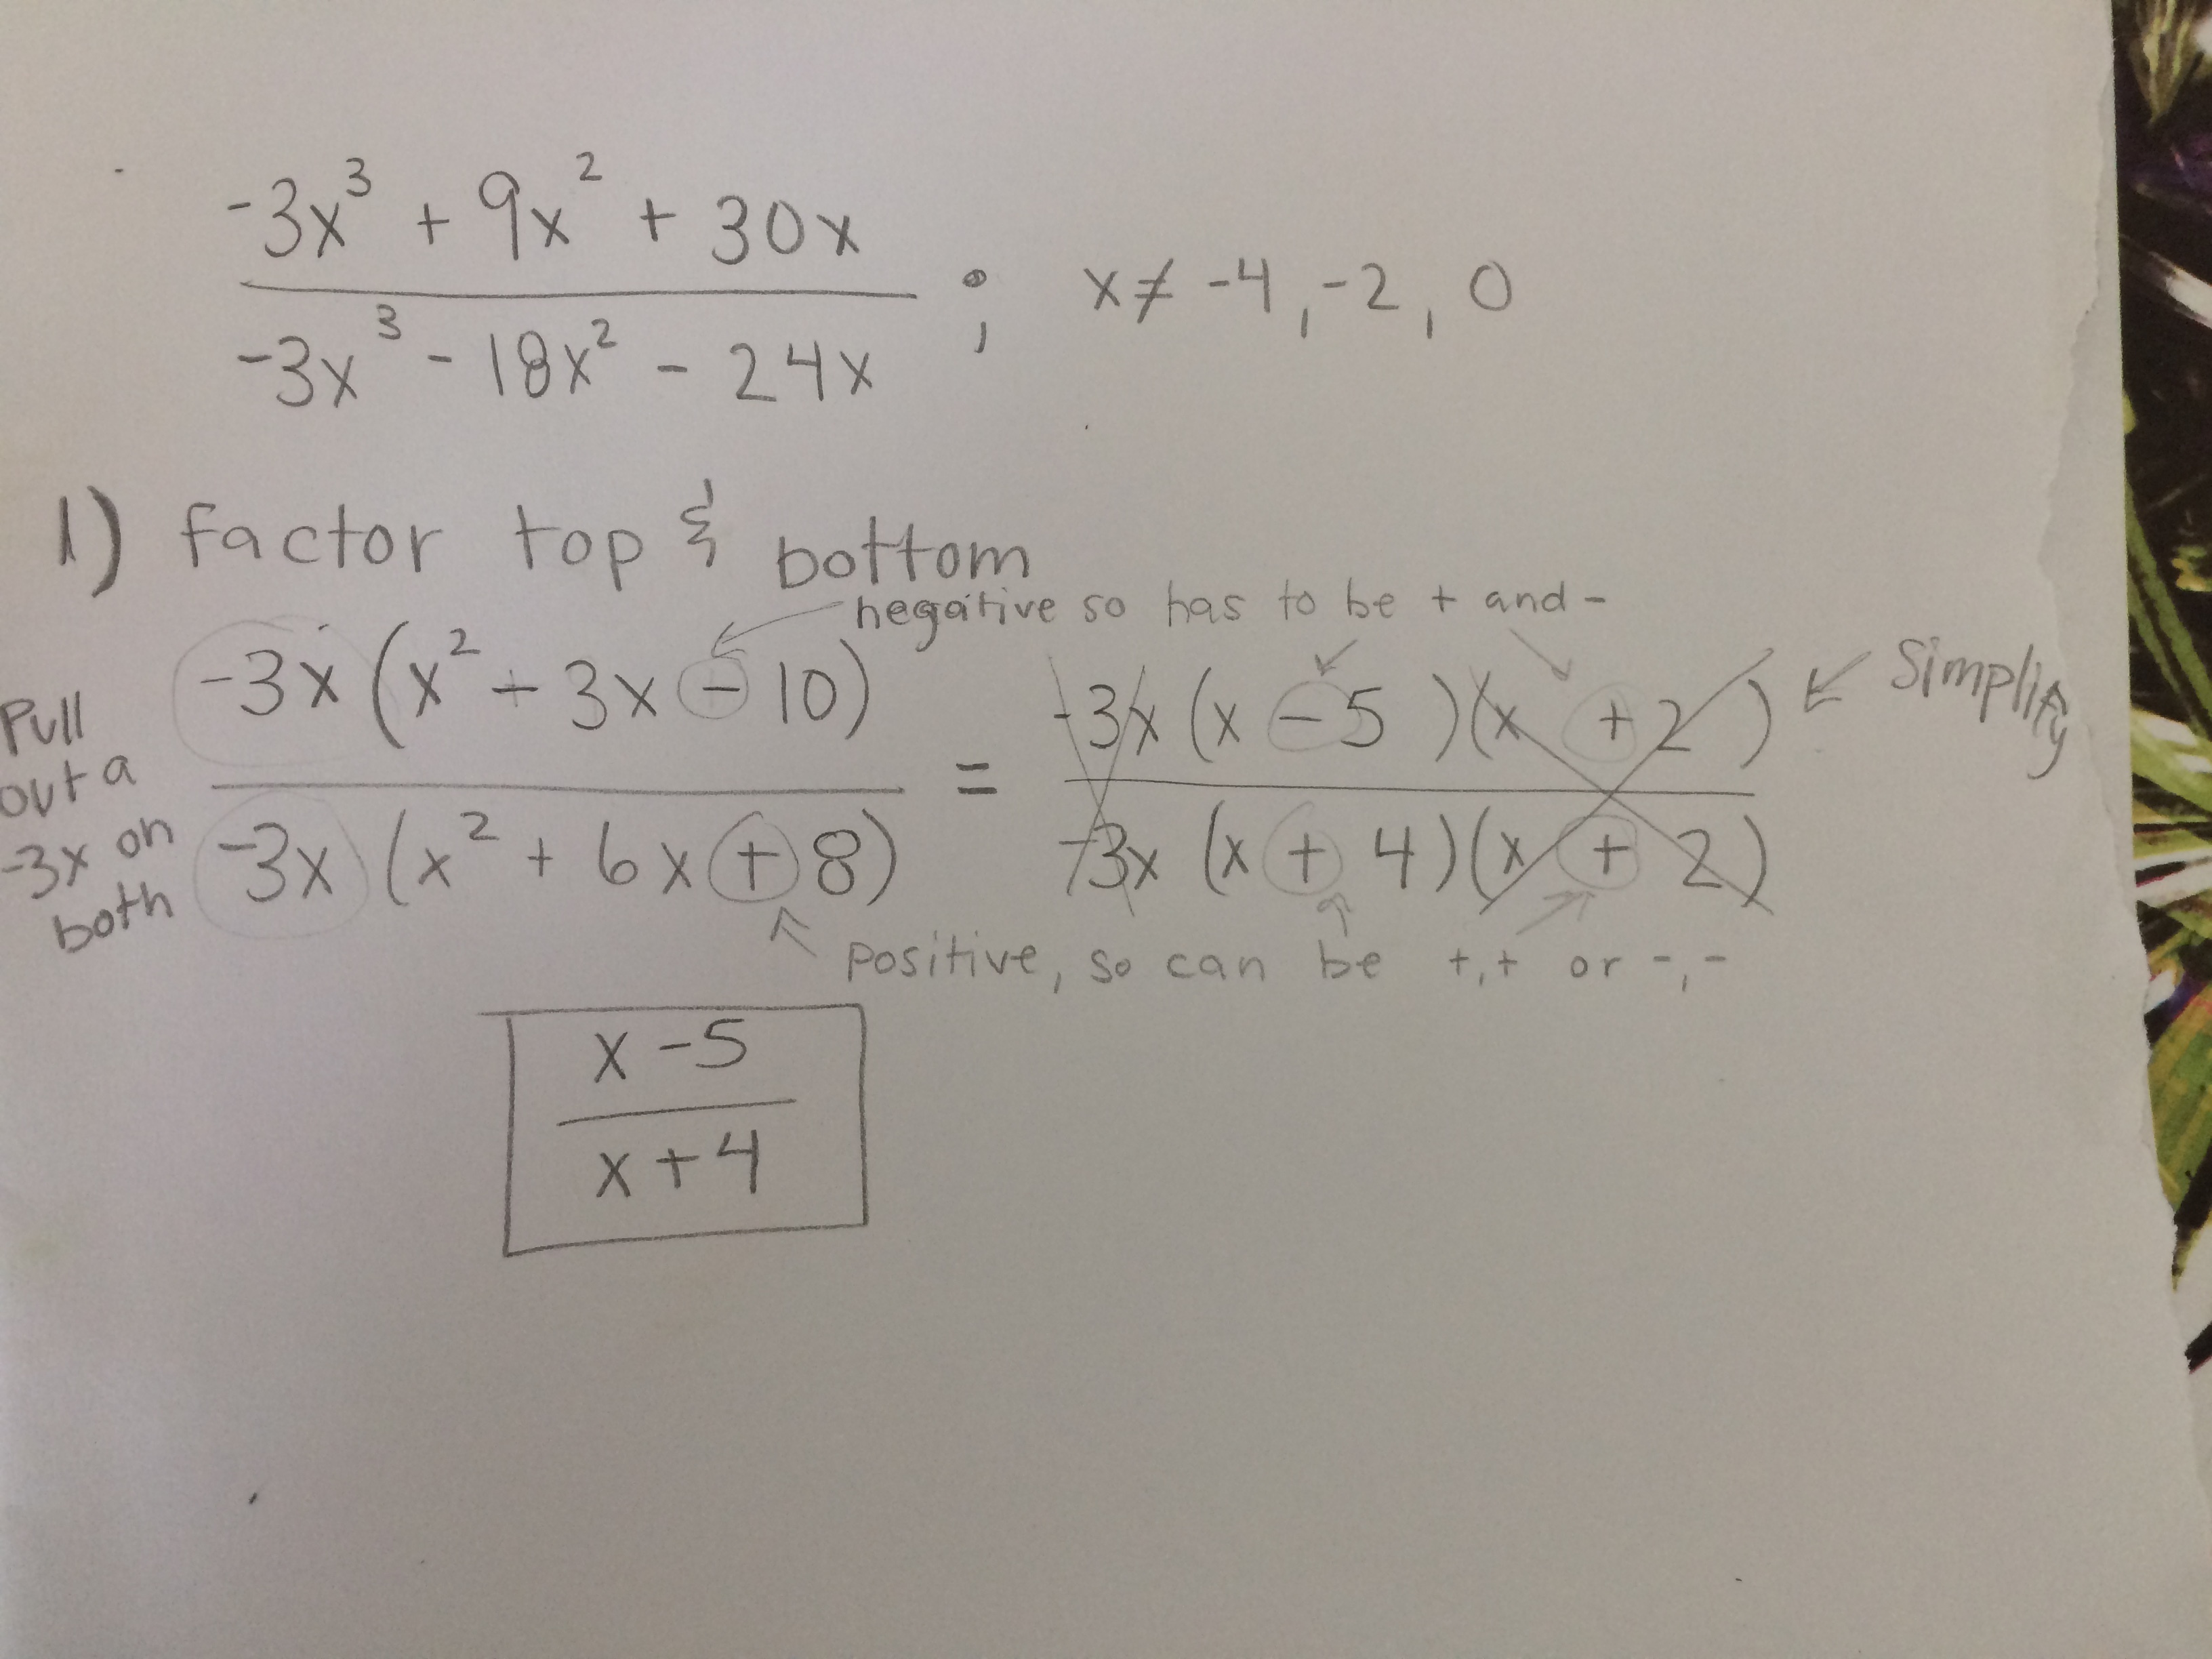 -3x³ + 9x² + 30x
-3x³ - 18x² - 24x
; x ≠ -4, -2, 0
1) factor top & bottom
negative so has to be + and -
Pull out a -3x on both
-3x (x² + 3x - 10)
-3x (x² + 6x + 8)
=
-3x (x - 5)(x + 2)
-3x (x + 4)(x + 2)
Simplify
positive, so can be +,+ or -,-
x - 5
x + 4